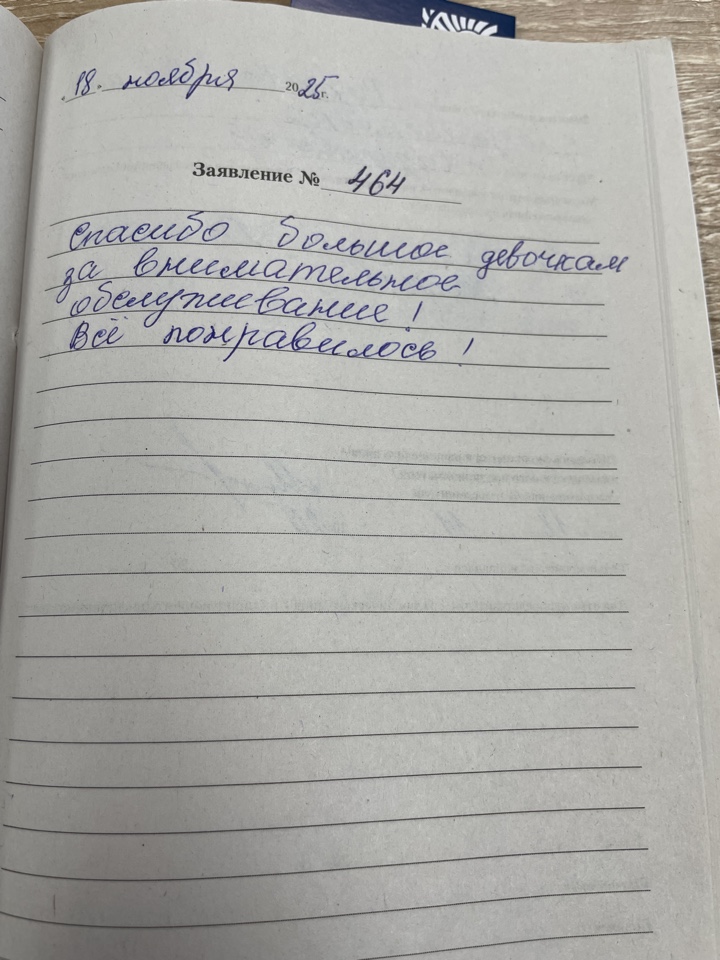 18. ноября 2025г.
Заявление № 464
Спасибо большое девочкам
за внимательное
обслуживание!
Всё понравилось!